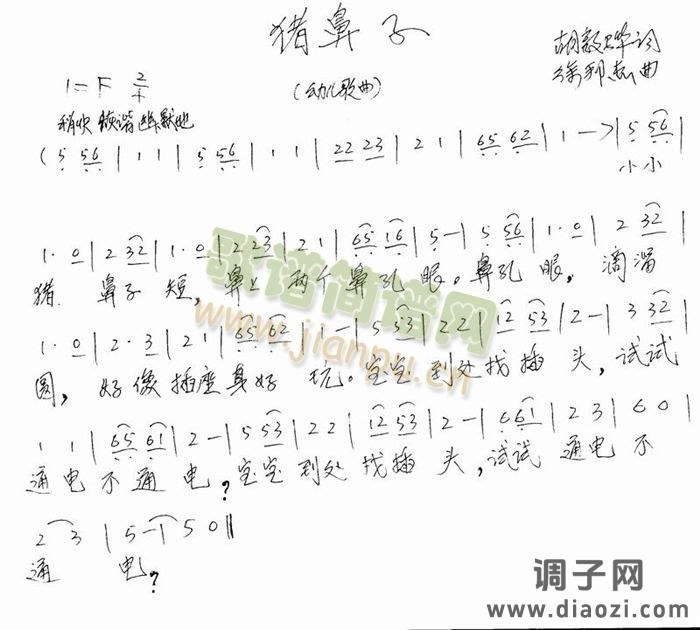 猪鼻子
胡敦骅词
徐邦杰曲
1=F 2/4
(幼儿歌曲)
稍快 诙谐幽默地
(5 56 | 1 1 | 5 56 | 1 1 | 22 23 | 2 1 | 65 62 | 1 —>| 5 56 |
小小
1· 0 | 2 32 | 1· 0 | 2 23 | 2 1 | 65 16 | 5 — | 5 56 | 1· 0 | 2 32 |
猪. 鼻子短,鼻上两个鼻孔眼。鼻孔眼,滴溜
1· 0 | 2· 3 | 2 1 | 65 62 | 1 — | 5 53 | 2 2 | 12 53 | 2 — | 3 32 |
圆,好像插座真好玩。宝宝到处找插头,试试
1 1 | 65 61 | 2 — | 5 53 | 2 2 | 12 53 | 2 — | 6 61 | 2 3 | 6 0 |
通电不通电?宝宝到处找插头,试试通电不
2 3 | 5 — | 5 0 ‖
通电?
歌谱简谱网
www.jianpu.cn
调子网
www.diaozi.com